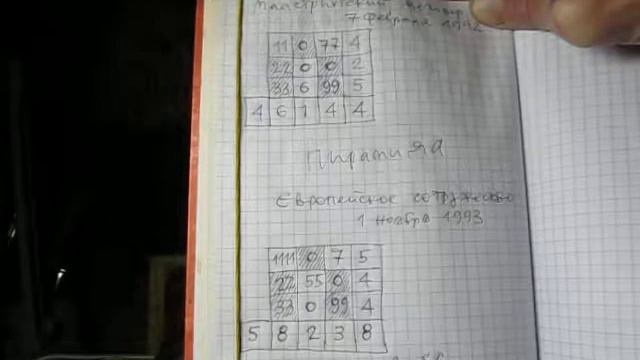 Маастрихтский договор
7 февраля 1992
11 0 77 4
22 0 0 2
33 6 99 5
4 6 1 4 4
Пирамида
Европейское сотружество
1 ноября 1993
1111 0 7 5
22 55 0 4
33 0 99 4
5 8 2 3 8